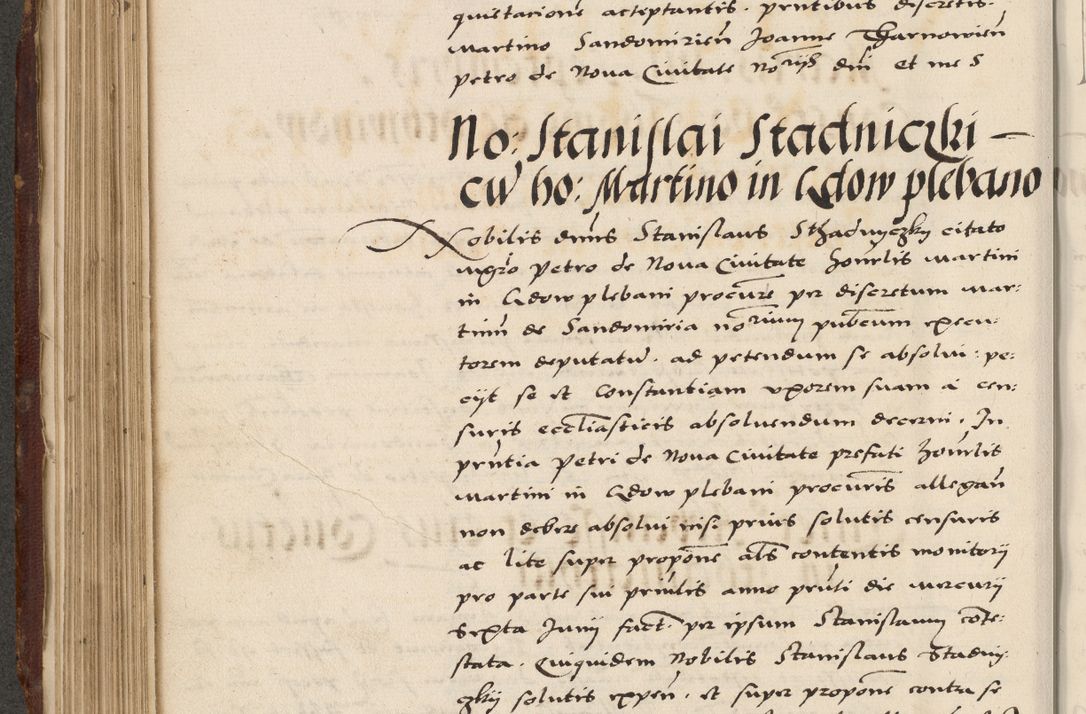 quietacione acceptantis. pntibus discretis
Martino Sandomirien Joanne Tharnowien
petro de Nova Civitate Noriis dni et me S
No: Stanislai Stadniczki
cu ho: Martino in Gdow plebano
Nobilis dnus Stanislaus Sthadnyczky citato
mgro Petro de Nova Civitate honrlis Martini
in Gdow plebani procure per discretum Mar:
tinu de Sandomiria norium pubcum execu:
torem deputatu. ad petendum se absolvi: pe:
cijt se et Constantiam uxorem suam a cen:
suris ecclasticis absolvendum decerni. In
pruntia Petri de Nova Civitate prefati honrlis
Martini in Gdow plebani procuris allegan
non debere absolvi nisi prius solutis censuris
ac lite super propone als contentis monitorij
pro parte sui prinlis anno prnti die Mercurij
Sexta Junij fact. per ipsum Stanislaum cote:
stata. Quiquidem Nobilis Stanislaus Stadny:
czkij solutis expen. et super propone contra se